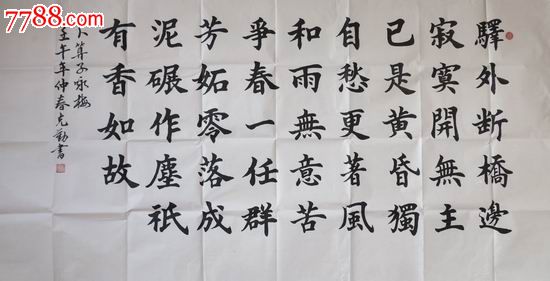 7788.com
驛外断橋邊
寂寞開無主
已是黄昏獨
自愁更著風
和雨無意苦
爭春一任群
芳妬零落成
泥碾作塵祇
有香如故
卜算子咏梅
壬午年仲春克勤書